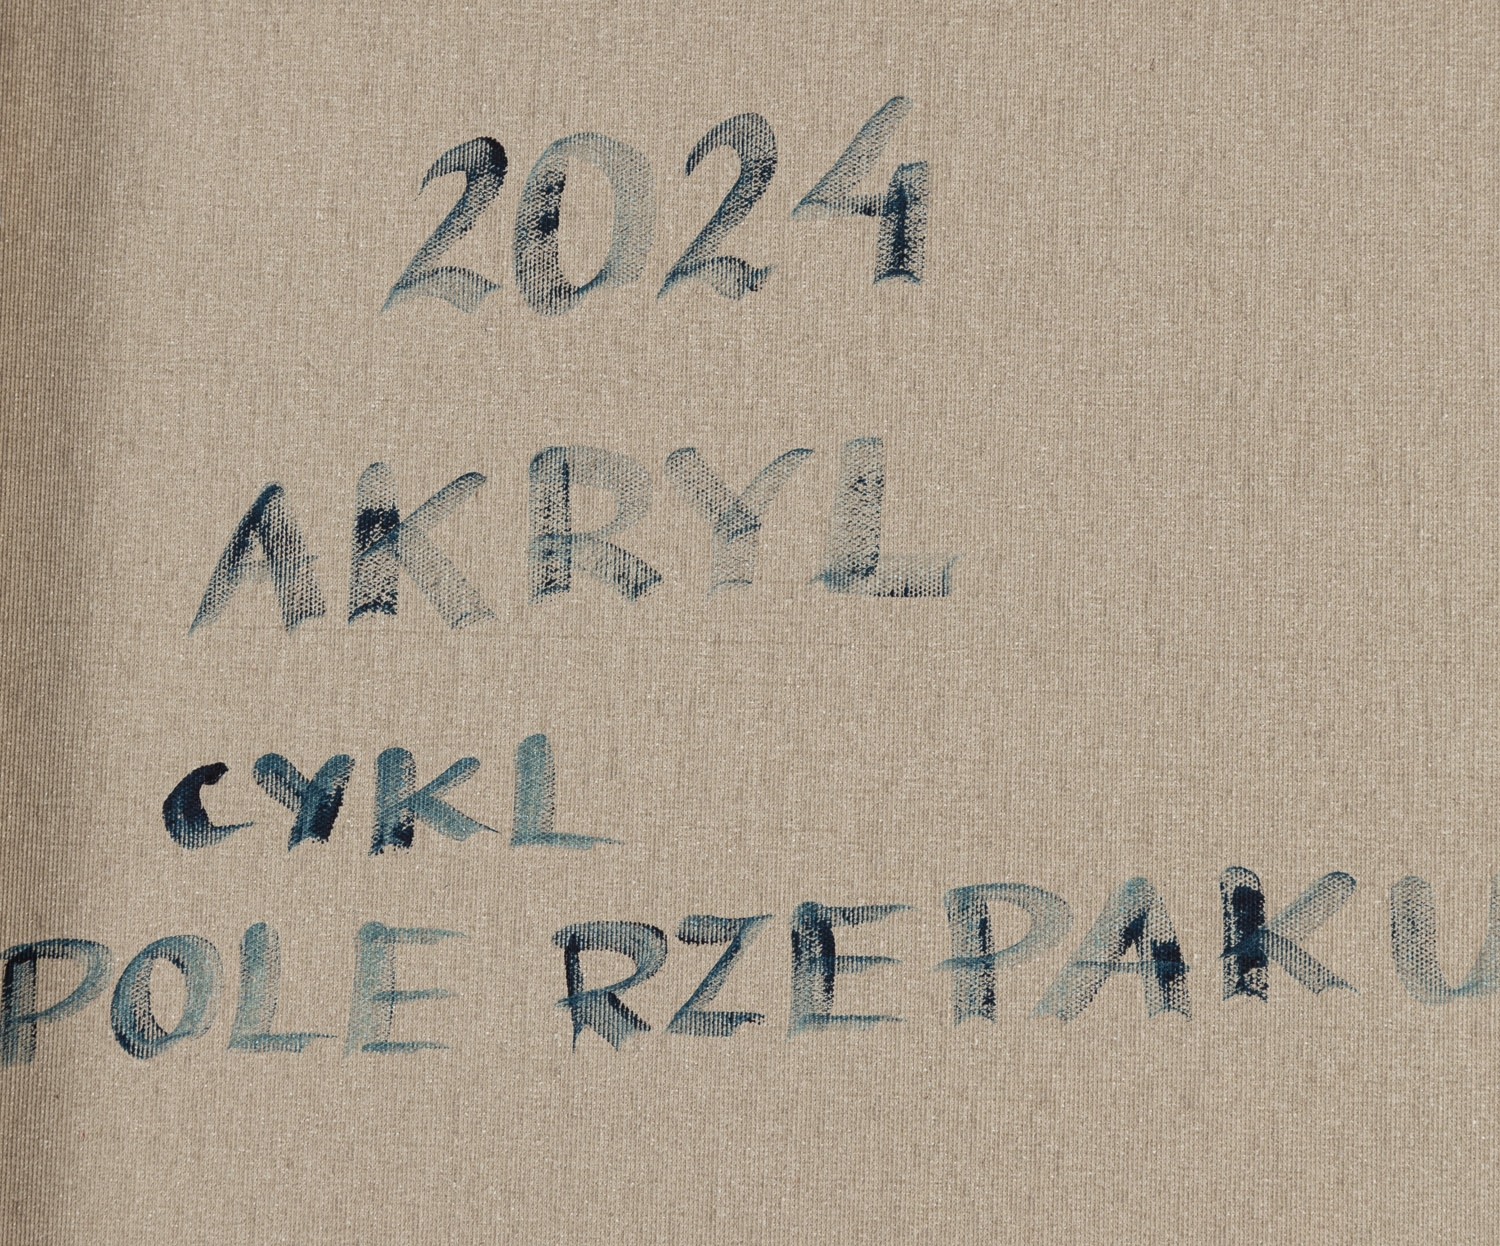 2024
AKRYL
CYKL
POLE RZEPAKU